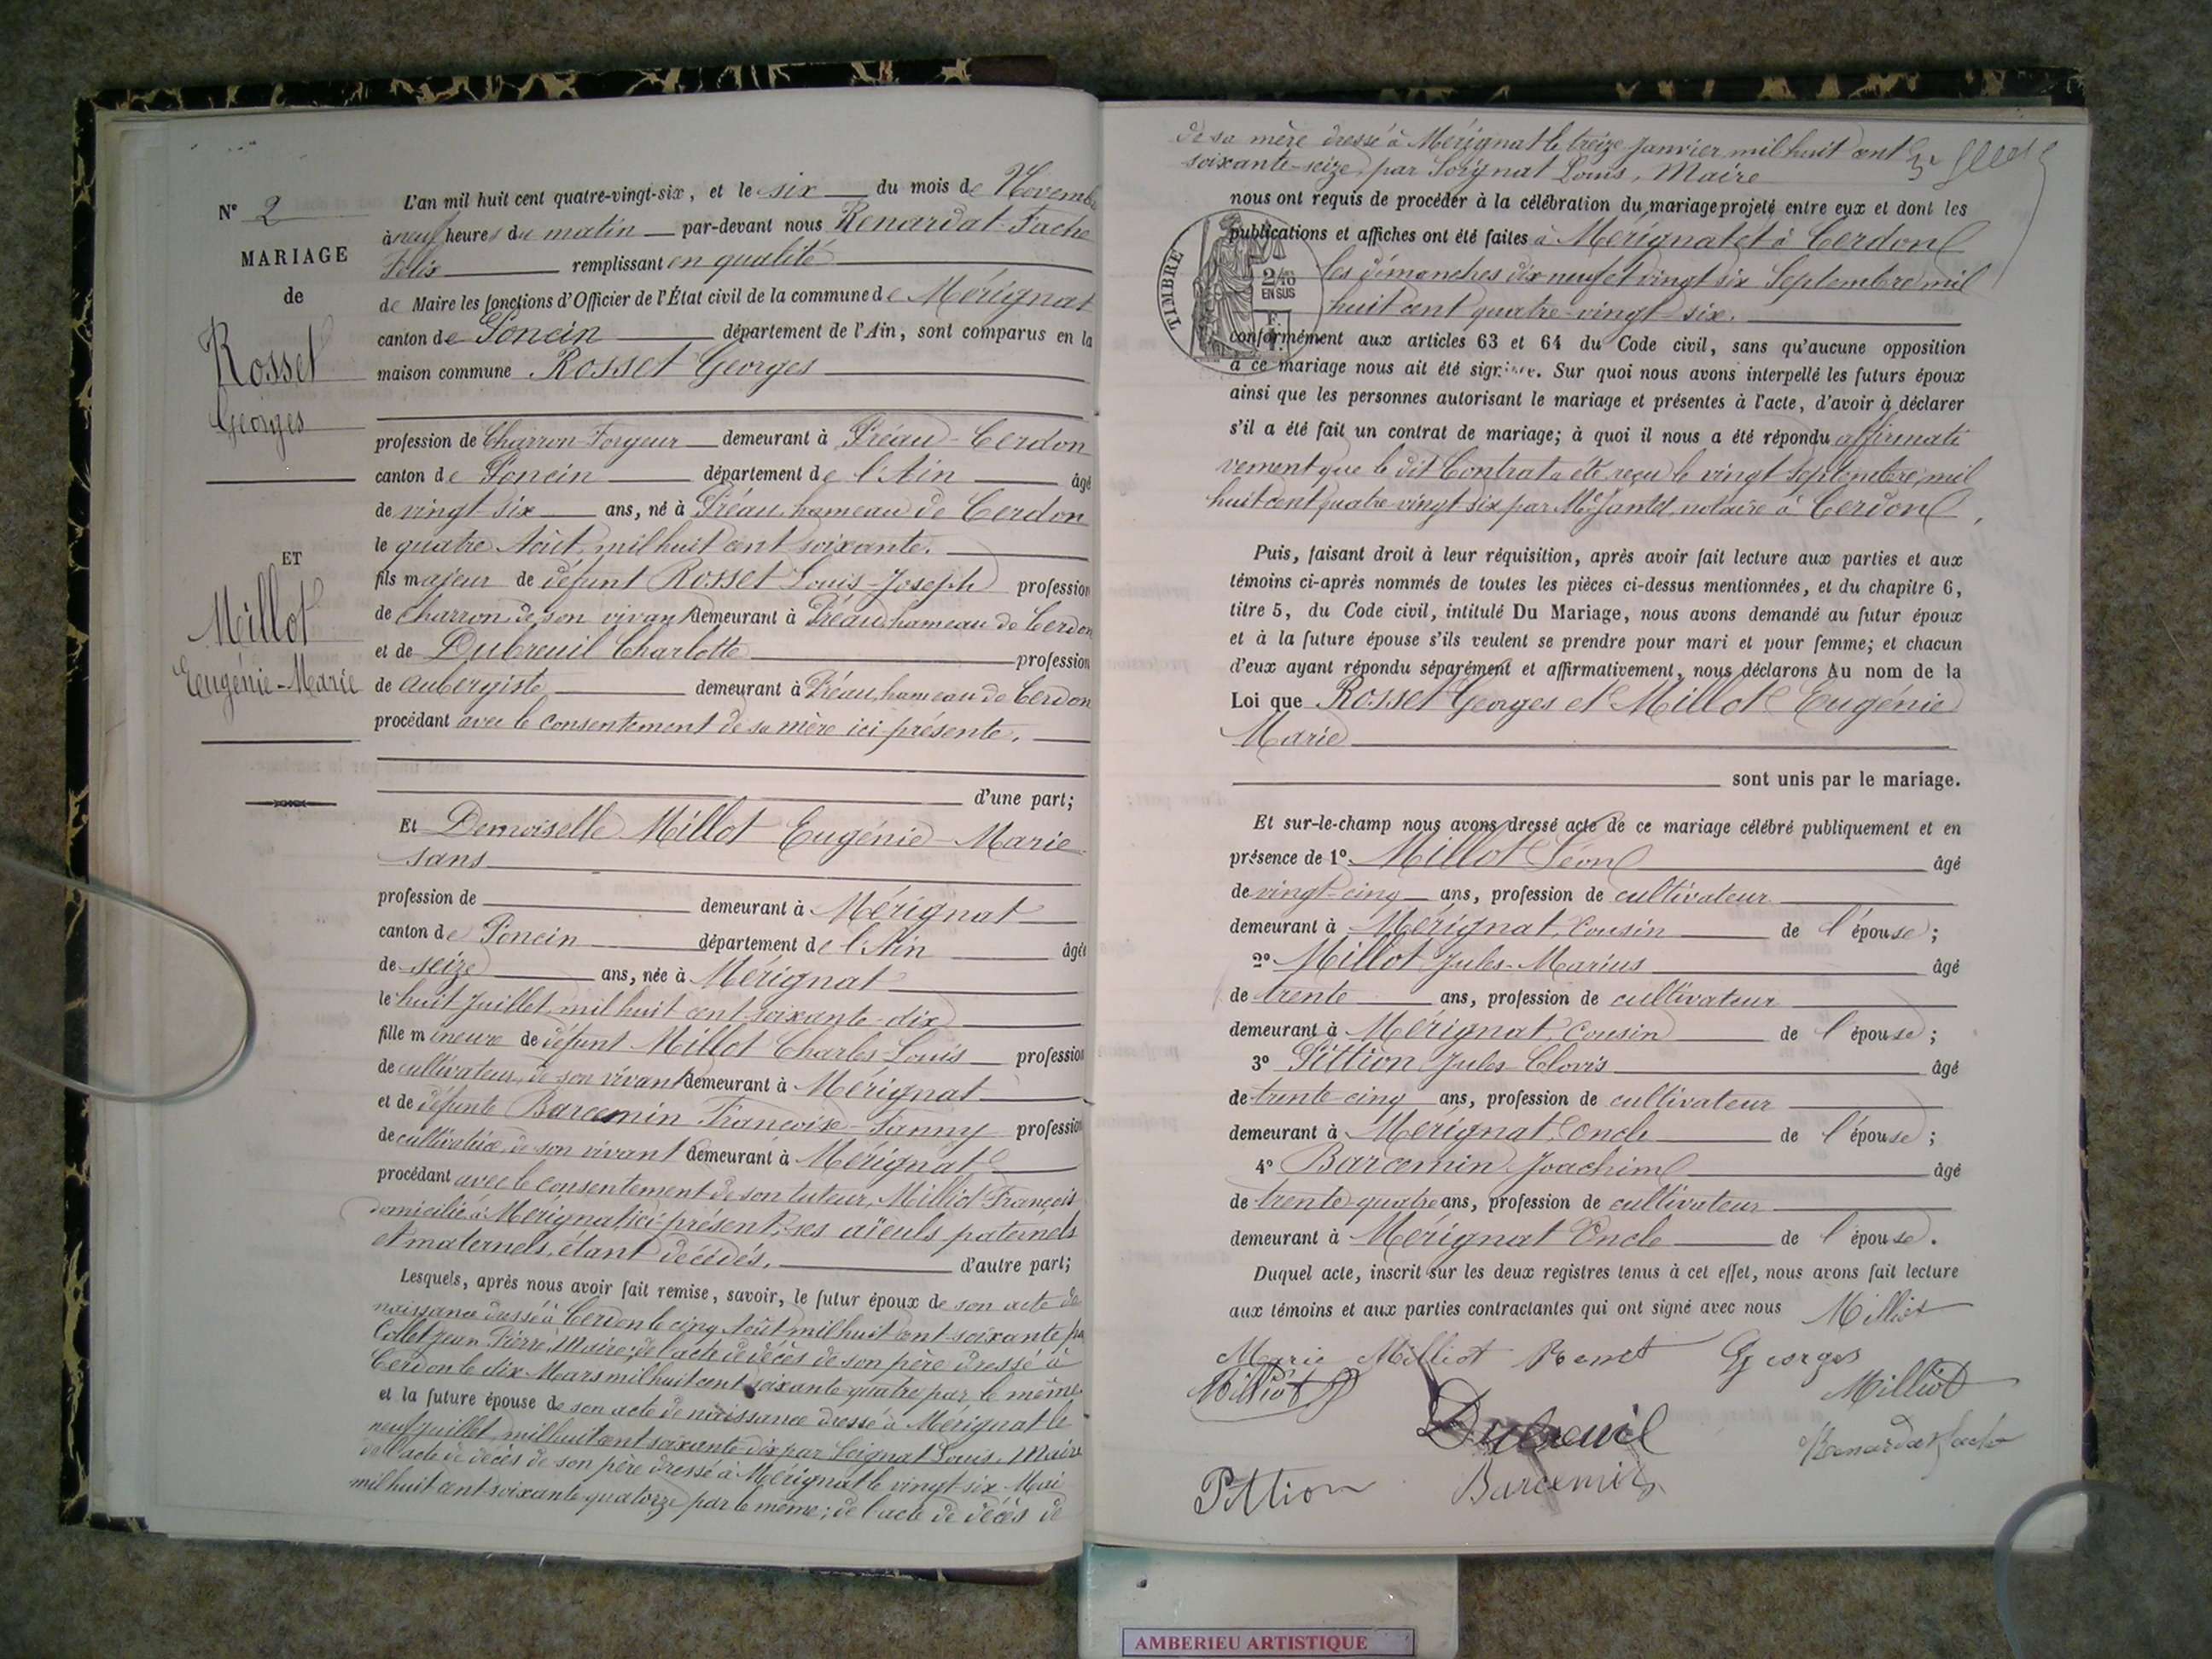 N° 2
MARIAGE
de
Rosset
Georges
ET
Millot
Eugénie-Marie
L'an mil huit cent quatre-vingt-six, et le six du mois de Novemb
à neuf heures du matin par-devant nous Renardat-Fache
Félix remplissant en qualité
de Maire les fonctions d'Officier de l'État civil de la commune de Mérignat
canton de Poncin département de l'Ain, sont comparus en la
maison commune Rosset Georges
profession de Charron-Forgeur demeurant à Préau-Cerdon
canton de Poncin département de l'Ain âgé
de vingt-six ans, né à Préau, hameau de Cerdon
le quatre Août mil huit cent soixante.
fils majeur de défunt Rosset Louis-Joseph profession
de charron, de son vivant demeurant à Préau hameau de Cerdon
et de Dubreuil Charlotte profession
de aubergiste demeurant à Préau, hameau de Cerdon
procédant avec le consentement de sa mère ici présente.
d'une part;
Et Demoiselle Millot Eugénie-Marie
sans
profession de demeurant à Mérignat
canton de Poncin département de l'Ain âgée
de seize ans, née à Mérignat
le huit Juillet mil huit cent soixante-dix
fille mineure de défunt Millot Charles-Louis profession
de cultivateur, de son vivant demeurant à Mérignat
et de défunte Barcemin Françoise-Fanny profession
de cultivatrice, de son vivant demeurant à Mérignat
procédant avec le consentement de son tuteur, Milliot François
domicilié à Mérignat ici présent, ses aïeuls paternels
et maternels, étant décédés. d'autre part;
Lesquels, après nous avoir fait remise, savoir, le futur époux de son acte de
naissance dressé à Cerdon le cinq Août mil huit cent soixante par
Collet Jean Pierre, Maire; de l'acte de décès de son père dressé à
Cerdon le dix Mars mil huit cent soixante quatre par le même
et la future épouse de son acte de naissance dressé à Mérignat le
neuf juillet mil huit cent soixante-dix par Soignat Louis, Maire
de l'acte de décès de son père dressé à Mérignat le vingt-six Mai
mil huit cent soixante quatorze par le même; de l'acte de décès de
de sa mère dressé à Mérignat le treize Janvier mil huit cent
soixante-seize, par Soignat Louis, Maire
nous ont requis de procéder à la célébration du mariage projeté entre eux et dont les
publications et affiches ont été faites à Mérignat et à Cerdon
les dimanches dix neuf et vingt six Septembre mil
huit cent quatre-vingt-six.
TIMBRE
2/10
EN SUS
conformément aux articles 63 et 64 du Code civil, sans qu'aucune opposition
à ce mariage nous ait été signifiée. Sur quoi nous avons interpellé les futurs époux
ainsi que les personnes autorisant le mariage et présentes à l'acte, d'avoir à déclarer
s'il a été fait un contrat de mariage; à quoi il nous a été répondu affirmati
vement que le dit Contrat a été reçu le vingt Septembre mil
huit cent quatre-vingt-six par Me Jantet, notaire à Cerdon
Puis, faisant droit à leur réquisition, après avoir fait lecture aux parties et aux
témoins ci-après nommés de toutes les pièces ci-dessus mentionnées, et du chapitre 6,
titre 5, du Code civil, intitulé Du Mariage, nous avons demandé au futur époux
et à la future épouse s'ils veulent se prendre pour mari et pour femme; et chacun
d'eux ayant répondu séparément et affirmativement, nous déclarons Au nom de la
Loi que Rosset Georges et Millot Eugénie
Marie
sont unis par le mariage.
Et sur-le-champ nous avons dressé acte de ce mariage célébré publiquement et en
présence de 1° Millot Léon âgé
de vingt-cinq ans, profession de cultivateur
demeurant à Mérignat, Cousin de l'épouse;
2° Millot Jules-Marius âgé
de trente ans, profession de cultivateur
demeurant à Mérignat, Cousin de l'épouse;
3° Pittion Jules Clovis âgé
de trente-cinq ans, profession de cultivateur
demeurant à Mérignat, Oncle de l'épouse;
4° Barcemin Joachim âgé
de trente-quatre ans, profession de cultivateur
demeurant à Mérignat Oncle de l'épouse.
Duquel acte, inscrit sur les deux registres tenus à cet effet, nous avons fait lecture
aux témoins et aux parties contractantes qui ont signé avec nous Milliot
Marie Milliot Georges
Milliot Milliot
Dubreuil
Renardat Fache
Pittion Barcemin
AMBERIEU ARTISTIQUE